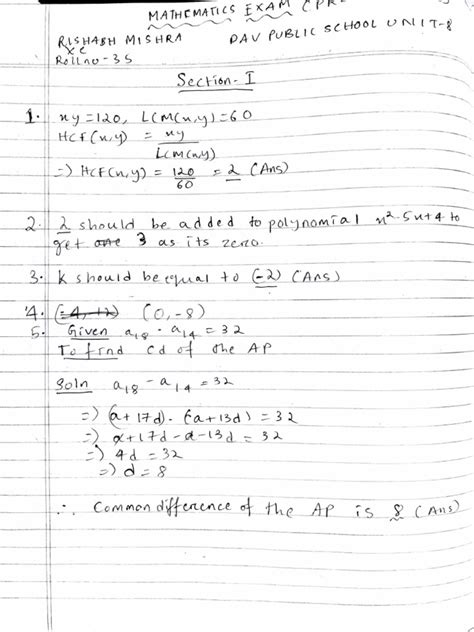 MATHEMATICS EXAM (PRE
RISHABH MISHRA DAV PUBLIC SCHOOL UNIT-8
Xc
Rollno-35
Section-I
1. xy=120, LCM(x,y)=60
HCF(x,y) = xy
LCM(x,y)
=) HCF(x,y) = 120 = 2 (Ans)
60
2. 2 should be added to polynomial x²-5x+4 to
get one 3 as its zero.
3. K should be equal to (-2) (Ans)
4. (-4,-12) (0,-8)
5. Given a18 - a14 = 32
To find cd of the AP
Soln a18 - a14 = 32
=) (a+17d) - (a+13d) = 32
=) a+17d-a-13d = 32
=) 4d = 32
=) d = 8
∴ Common difference of the AP is 8 (Ans)